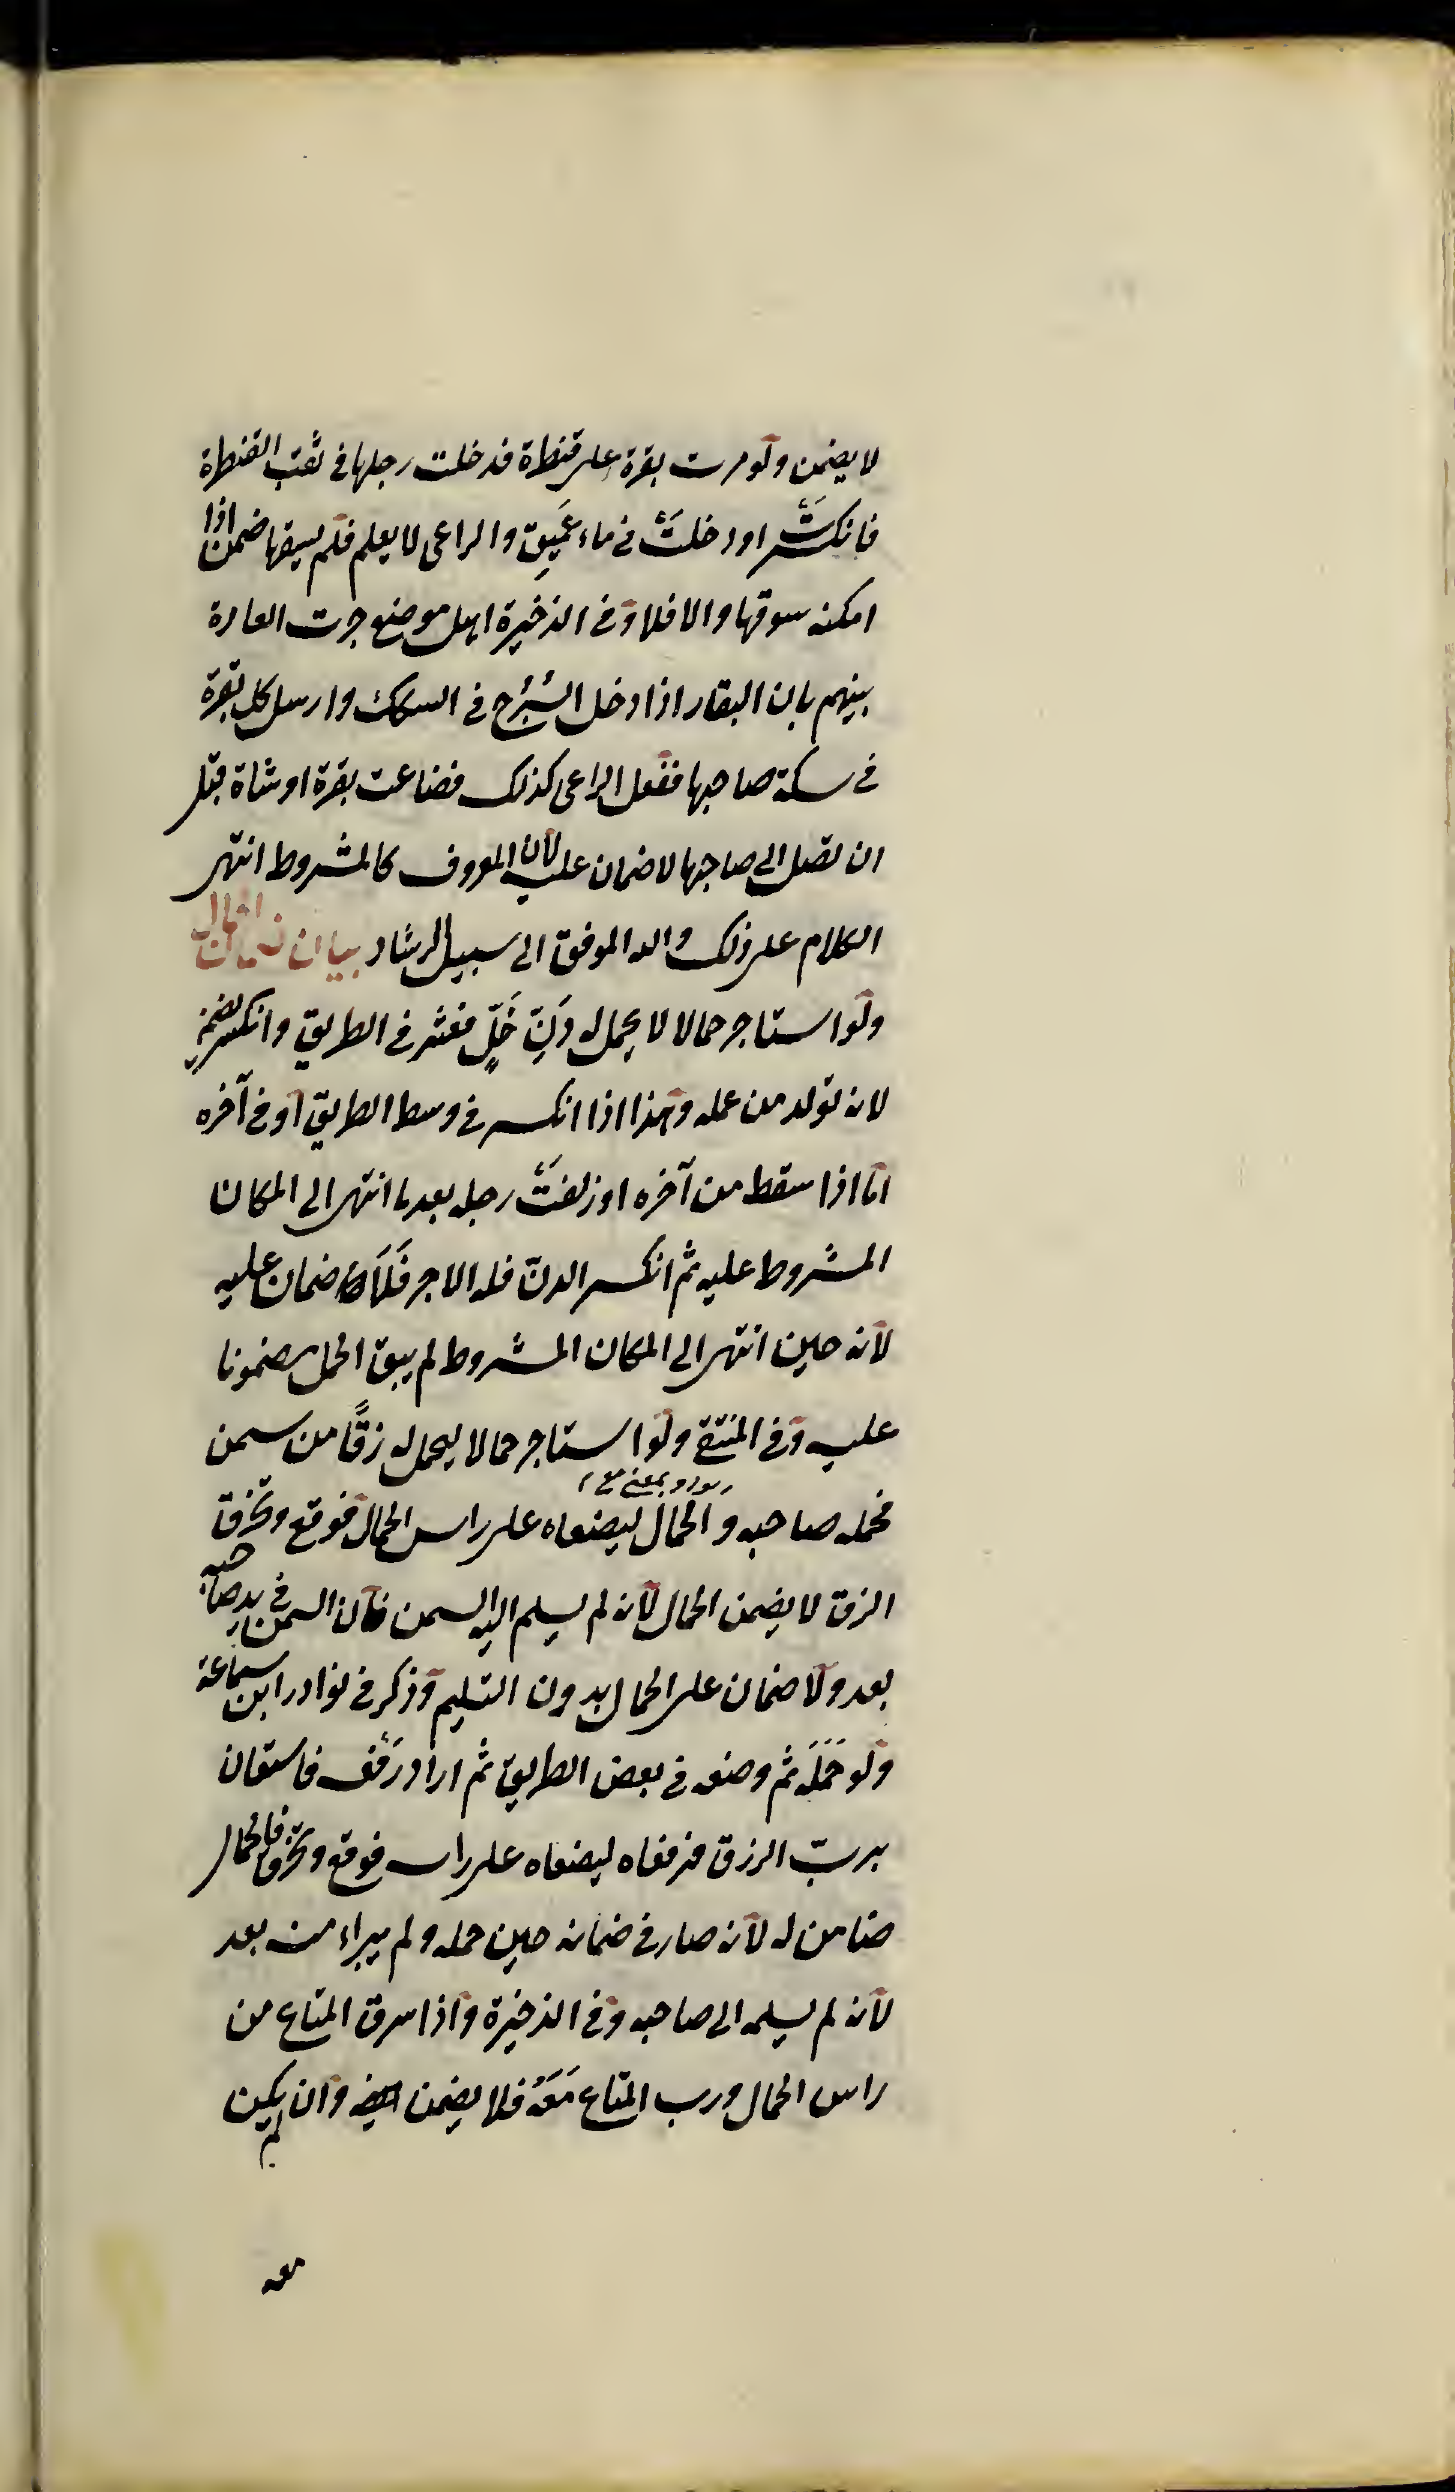 لا يضمن ولو مرت بقرة على قنطرة فدخلت رجلها في ثقب القنطرة
فانكسرت او دخلت في ماء عميق والراعى لا يعلم فلم يسقها ضمن اذا
امكنه سوقها والا فلا وفى الذخيرة اهل موضع جرت العادة
بينهم بان البقار اذا دخل السرح في السكك وارسل كل بقرة
في سكة صاحبها ففعل الراعى كذلك فضاعت بقرة او شاة قبل
ان تصل الى صاحبها لا ضمان عليه لان المعروف كالمشروط انتهى
الكلام على ذلك والله الموفق الى سبيل الرشاد بيان ضمان الحمال
ولو استاجر حمالا لا يحمل له دَنّ خَلٍّ فعثر في الطريق وانكسر يضمن
لانه تولد من عمله وهذا اذا انكسر في وسط الطريق او في آخره
اما اذا سقط من آخره او زلقت رجله بعد ما انتهى الى المكان
المشروط عليه ثم انكسر الدن فله الاجر فلا ضمان عليه
لانه حين انتهى الى المكان المشروط لم يبق الحمل مضمونا
عليه وفى المنتقى ولو استاجر حمالا ليحمل له زقًّا من سمن
واو بمعنى مع
فحمله صاحبه والحمال ليضعاه على راس الحمال فوقع وتخرق
الزق لا يضمن الحمال لانه لم يسلم اليه السمن فان السمن في يد صاحبه
بعد ولا ضمان على الحمال بدون التسليم وذكر في نوادر ابن سماعة
ولو حَمَلَه ثم وضعه في بعض الطريق ثم اراد رَفْعه فاستعان
بربّ الزق فرفعاه ليضعاه على راسه فوقع وتخرق فالحمال
ضامن له لانه صار في ضمانه حين حمله ولم يبراء منه بعد
لانه لم يسلمه الى صاحبه وفى الذخيرة واذا سرق المتاع من
راس الحمال ورب المتاع مَعَهُ فلا يضمن وان لم يكن
معه